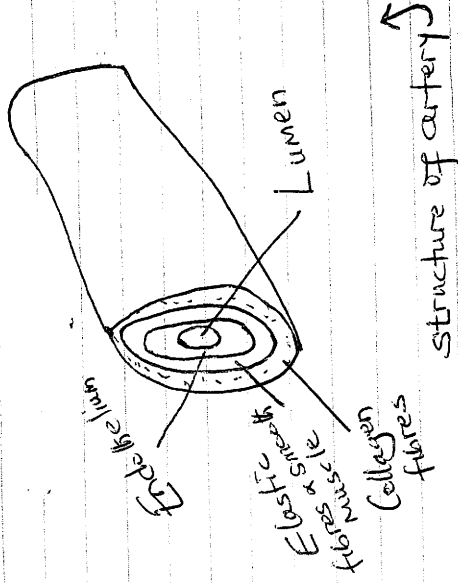 Endothelium
Lumen
Elastic
fibres & smooth
muscle
Collagen
fibres
structure of artery